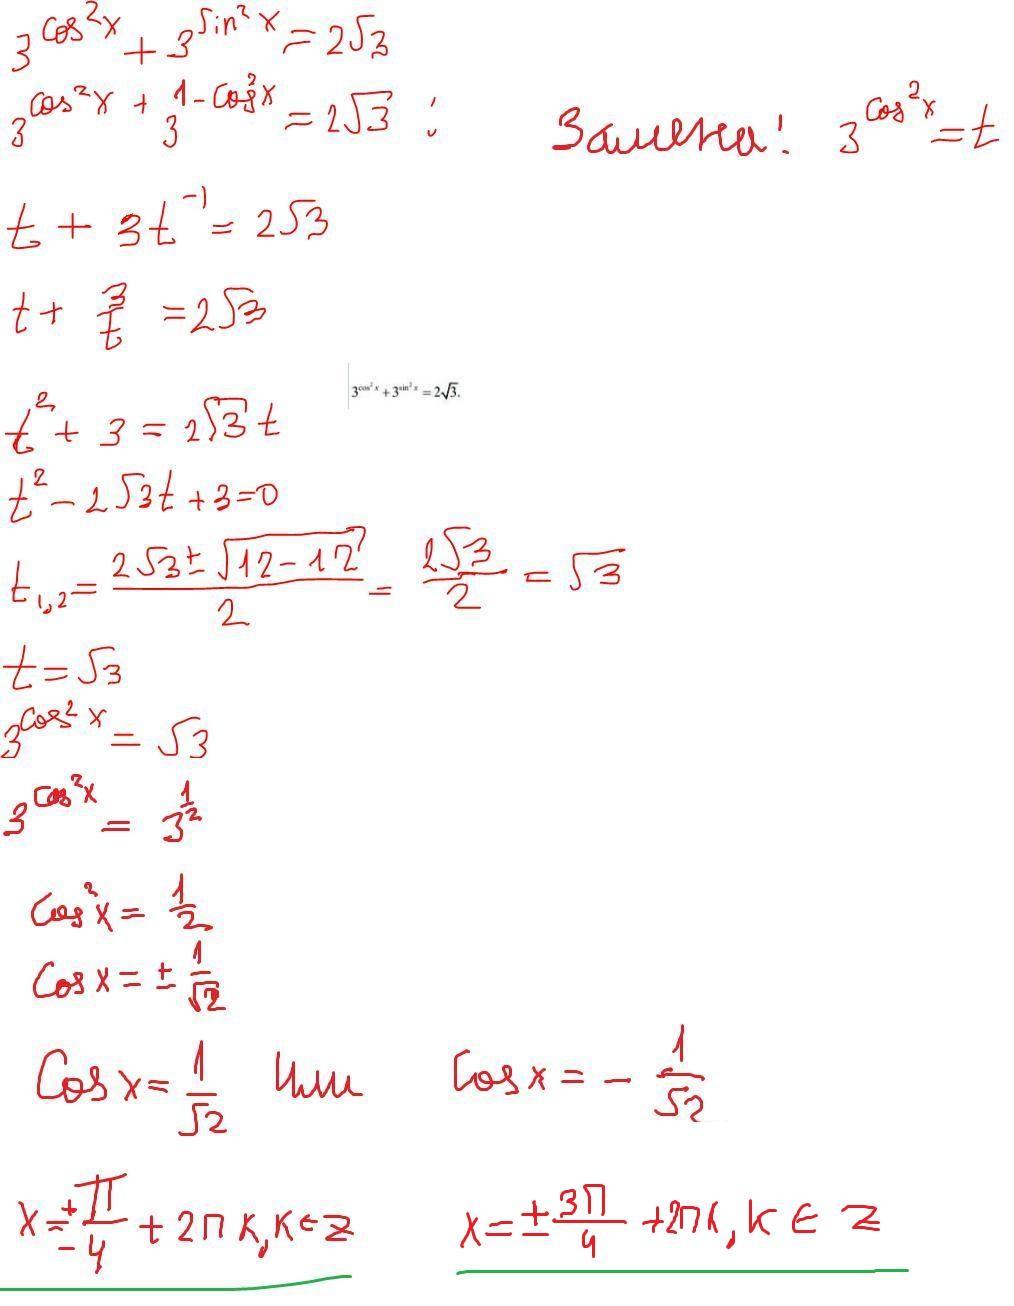 3^{cos²x} + 3^{sin²x} = 2√3
3^{cos²x} + 3^{1-cos²x} = 2√3 : Замена! 3^{cos²x} = t
t + 3t⁻¹ = 2√3
t + 3/t = 2√3
3^{cos² x} + 3^{sin² x} = 2√3.
t² + 3 = 2√3 t
t² - 2√3t + 3 = 0
t₁,₂ = (2√3 ± √(12-12))/2 = 2√3/2 = √3
t = √3
3^{cos²x} = √3
3^{cos²x} = 3^{1/2}
Cos²x = 1/2
Cosx = ± 1/√2
Cosx = 1/√2 или Cosx = - 1/√2
x = ± π/4 + 2πk, k ∈ Z x = ± 3π/4 + 2πk, k ∈ Z